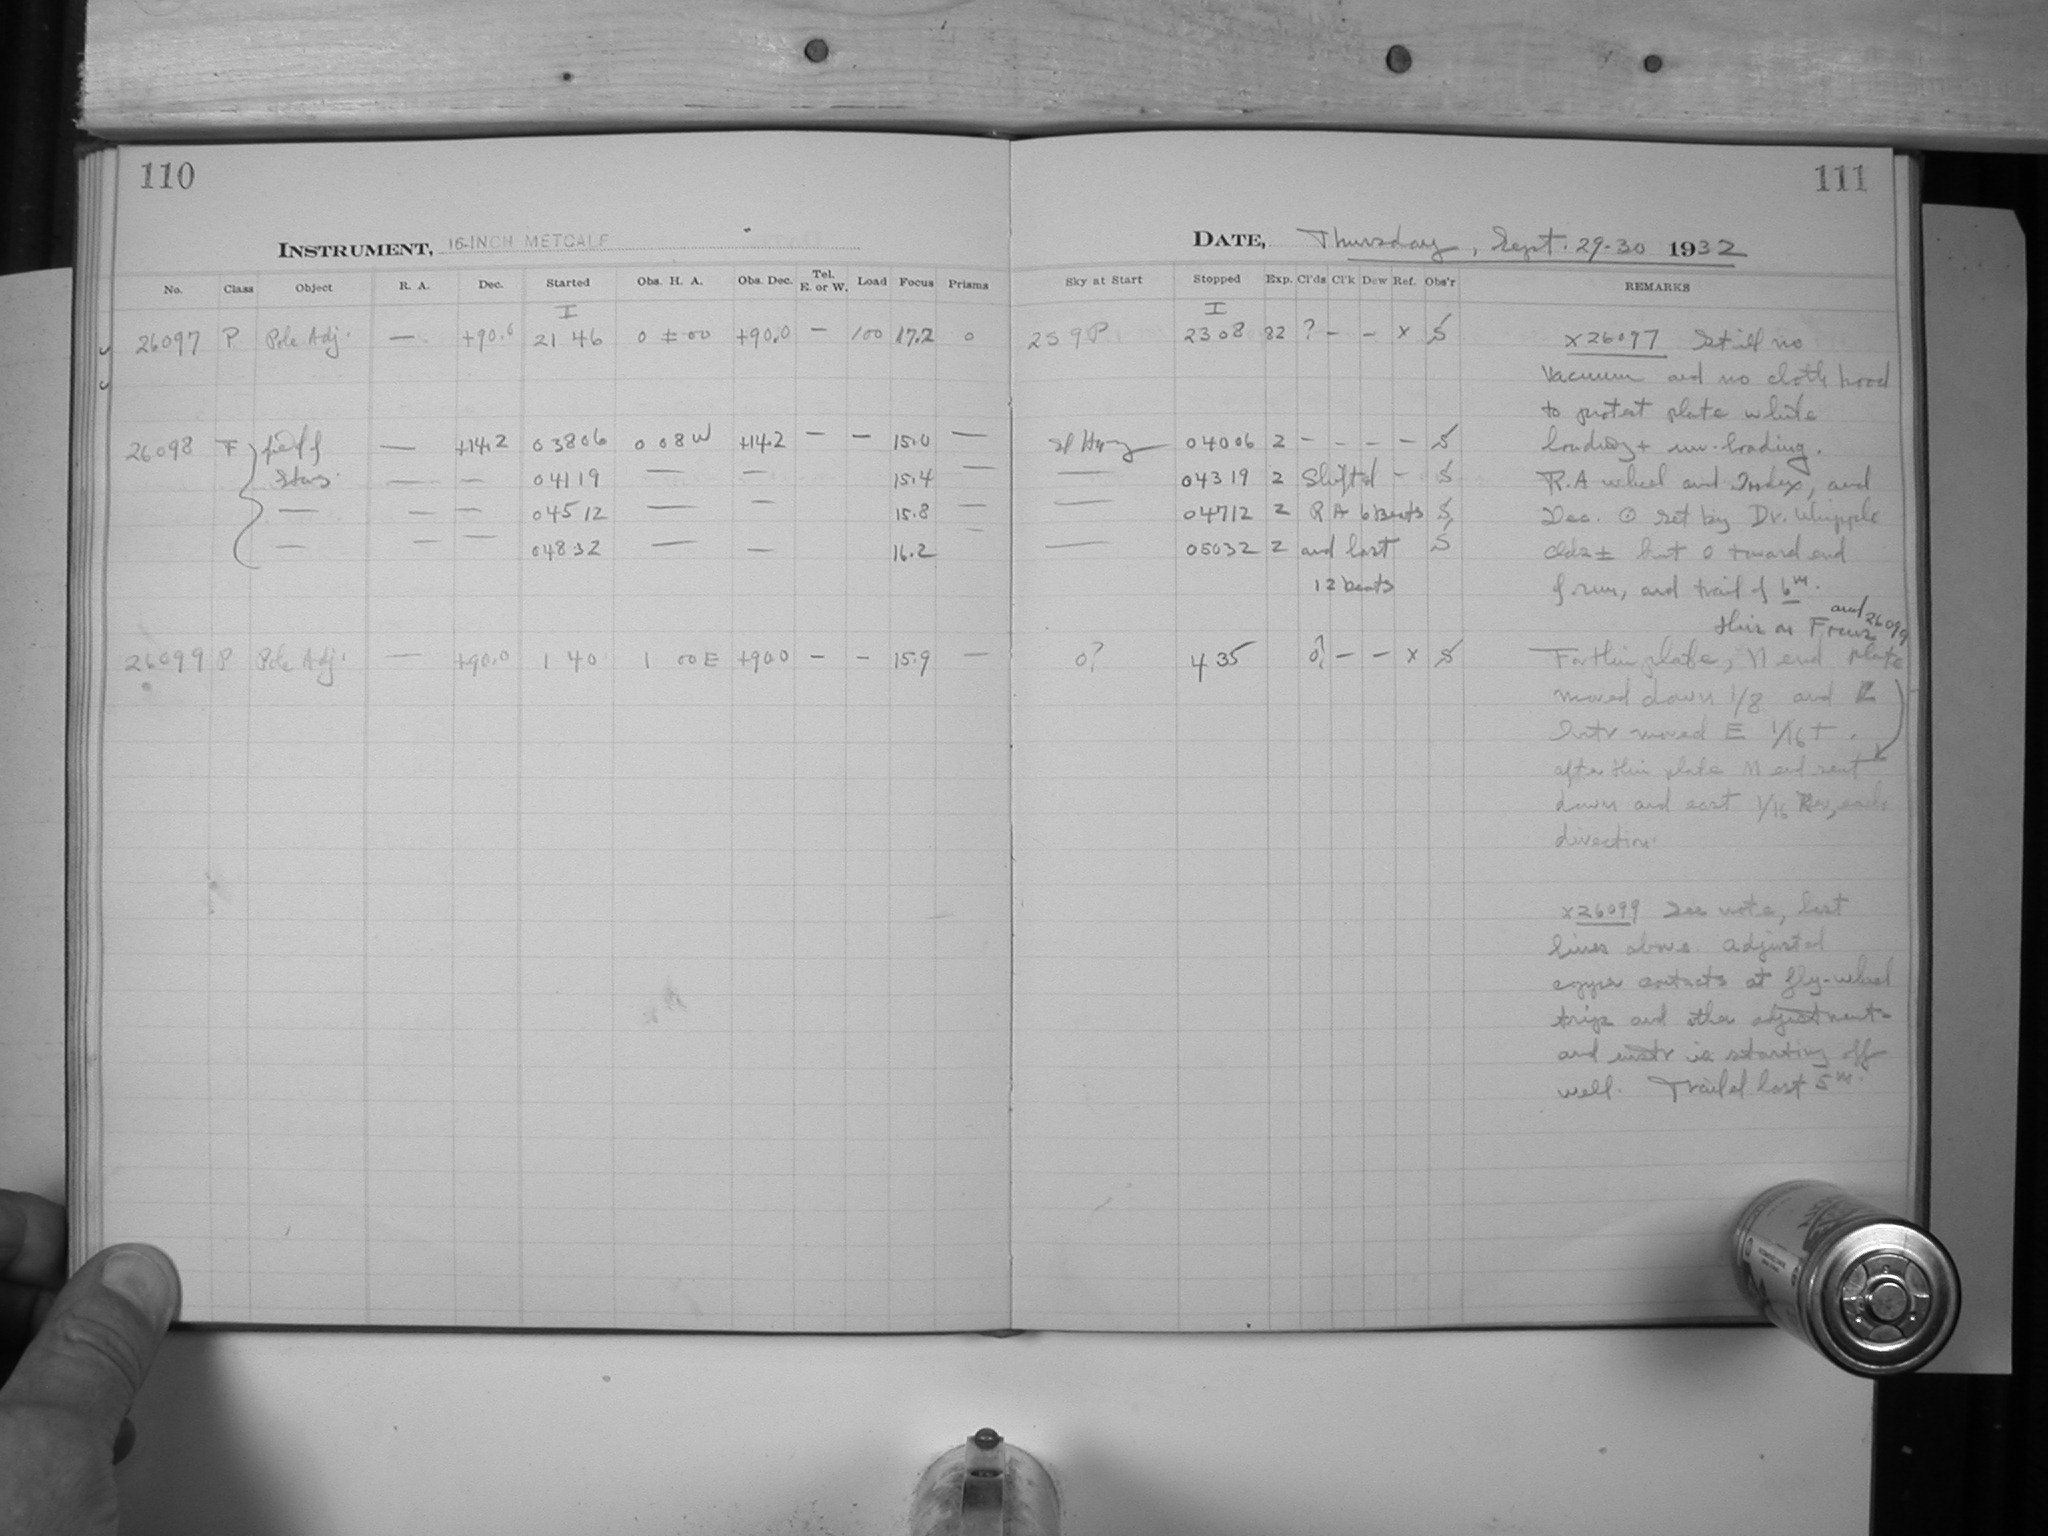 110
111
INSTRUMENT, 16-INCH METCALF
DATE, Thursday, Sept. 29-30 1932
No. Class Object R. A. Dec. Started Obs. H. A. Obs. Dec. Tel. E. or W. Load Focus Prisms Sky at Start Stopped Exp. Cl'ds Cl'k Dew Ref. Obs'r REMARKS
I I
26097 P Pole Adj. — +90.0 21 46 0 ± 00 +90.0 — 100 17.2 0 2308 82 ? — — x S x26097 Still no
Vacuum and no cloth hood
to protect plate while
26098 F field of — +14.2 03806 0 08 W +14.2 — — 15.0 — 04006 2 — — — — S loading + un-loading.
stars. — — 04119 — — 15.4 — — 04319 2 Shifted — S R.A wheel and Index, and
— — — 04512 — — 15.8 — — 04712 2 R A 6 beats S Dec. ⊙ set by Dr. Whipple
— — — 04832 — — 16.2 — — 05032 2 and last S clds ± but 0 toward end
12 beats of run, and trail of 6m.
and 26099
this as Focus plate
26099 P Pole Adj. — +90.0 1 40 1 00 E +90.0 — — 15.9 — 0? 4 35 0? — — x S For this plate, N end
moved down 1/8 and
Instr moved E 1/16 +.
after this plate N end went
down and east 1/16 Rev, each
direction.
x26099 See note, last
lines above. Adjusted
copper contacts at fly-wheel
trips and other adjustment-
and instr is starting off
well. Trailed last 5m.